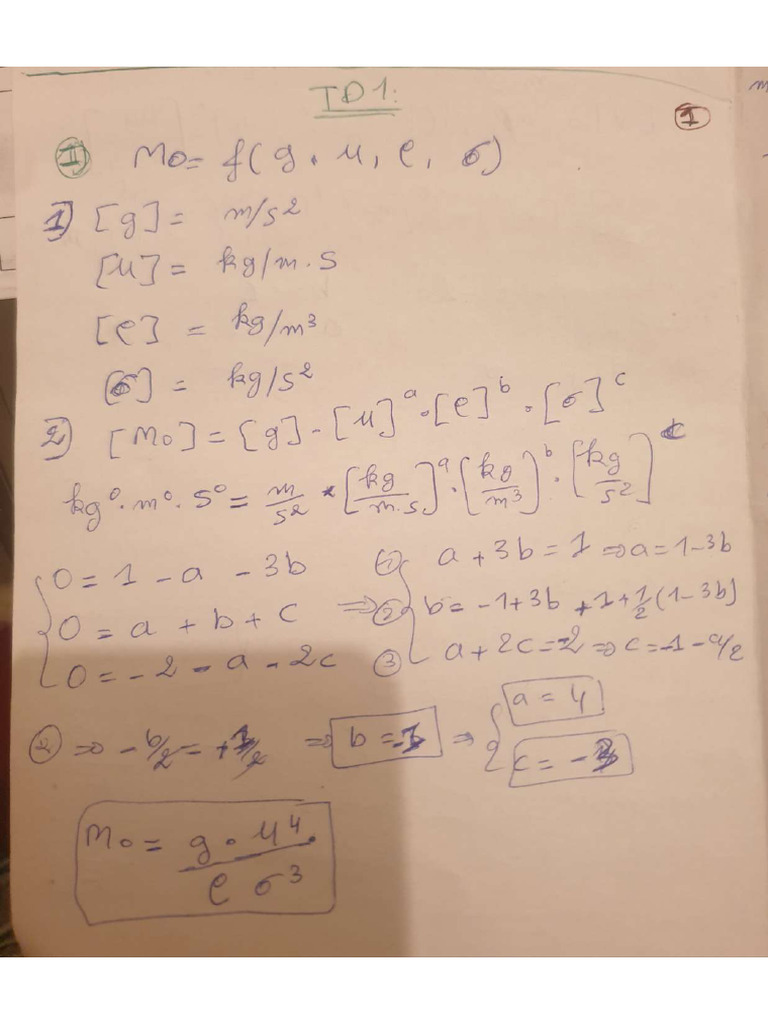 TD1:
I
II) Mo = f(g, μ, ρ, σ)
1) [g] = m/s²
[μ] = kg/m·s
[ρ] = kg/m³
[σ] = kg/s²
2) [Mo] = [g] · [μ]ᵃ · [ρ]ᵇ · [σ]ᶜ
kg⁰ · m⁰ · s⁰ = m/s² * [kg/m·s]ᵃ · (kg/m³)ᵇ · [kg/s²]ᶜ
{ 0 = 1 - a - 3b ① { a + 3b = 1 ⇒ a = 1-3b
0 = a + b + c ⇒ ② b = -1+3b +1+1/2(1-3b)
0 = -2 - a - 2c ③ a + 2c = -2 ⇒ c = -1 - a/2
② ⇒ -b/2 = +1/2 ⇒ b = -1 ⇒ { a = 4
c = -3
Mo = g · μ⁴ / ρ σ³